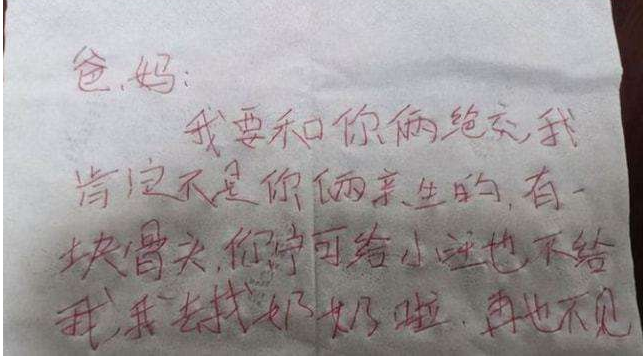 爸.妈:
我要和你俩绝交,我
肯定不是你俩亲生的,有一
块骨头,你宁可给小汪也不给
我,我去找奶奶啦.再也不见